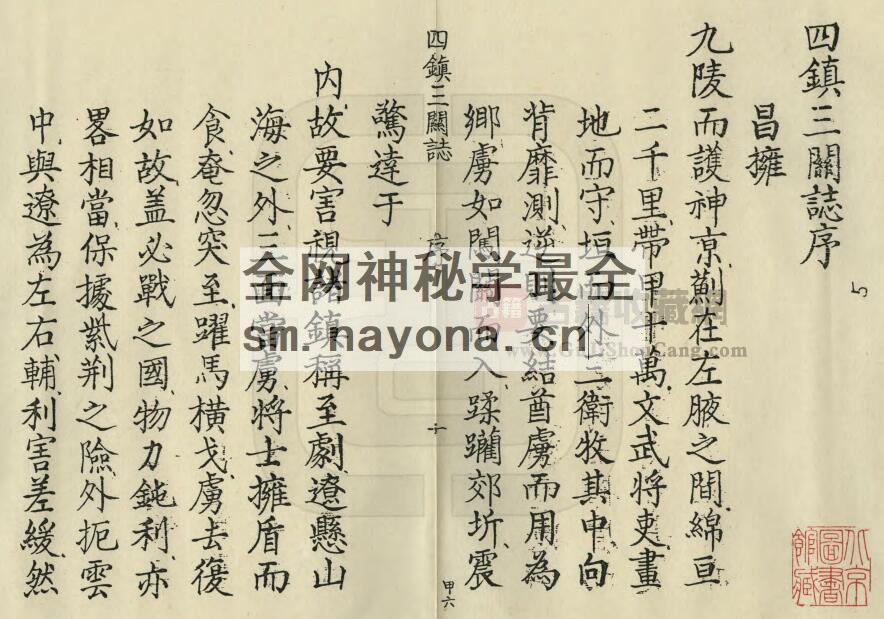 四鎮三關誌序
昌擁
九陵而護神京薊在左腋之間綿亘
二千里帶甲十萬文武將吏畫
地而守垣以外三衛牧其中向
背靡測逆則要結酋虜而用為
鄉虜如闖關而入蹂躪郊圻震
驚達于
四鎮三關誌
序
十
甲六
內故要害視諸鎮稱至劇遼懸山
海之外三面當虜將士擁盾而
食奄忽突至躍馬橫戈虜去復
如故盖必戰之國物力鈍利亦
畧相當保據紫荆之險外扼雲
中與遼為左右輔利害差緩然
5
全网神秘学最全
sm.nayona.cn
古籍收藏網
北京圖書館藏